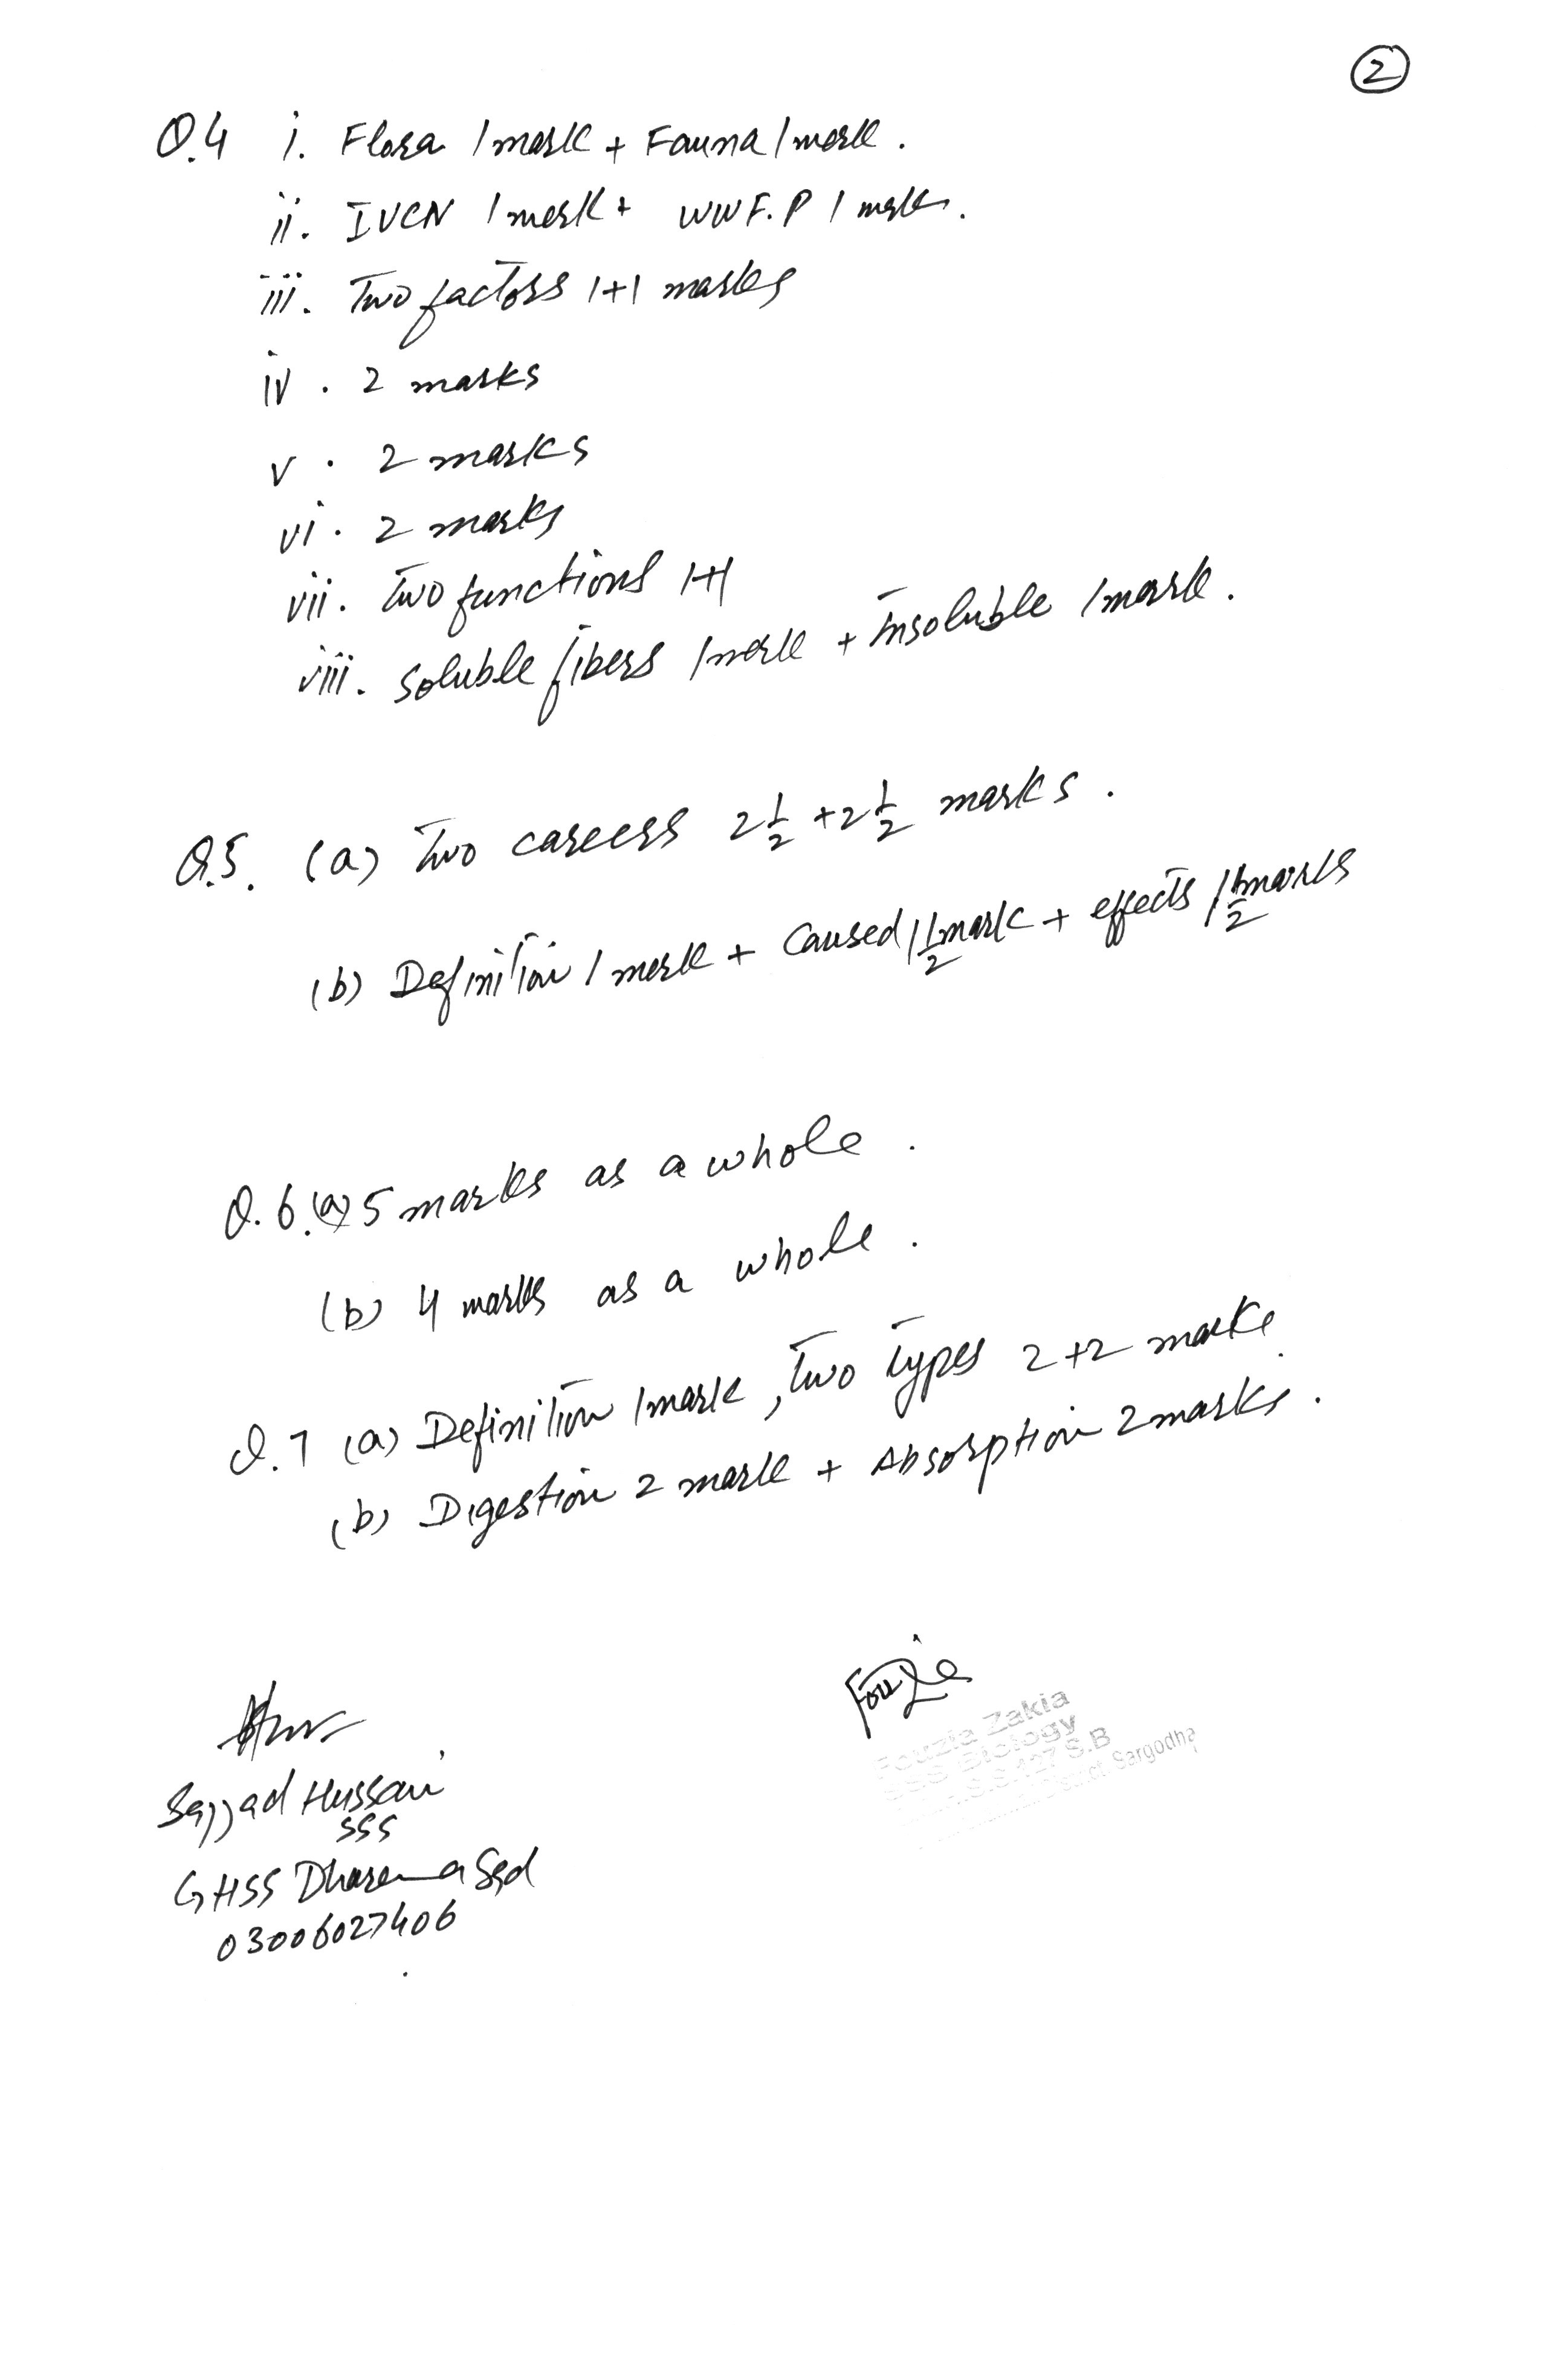 2
Q.4 i. Flora 1 mark + Fauna 1 mark.
ii. IUCN 1 mark + WWF.P 1 mark.
iii. Two factors 1+1 marks
iv. 2 marks
v. 2 marks
vi. 2 marks
vii. Two functions 1+1
viii. Soluble fibers 1 mark + Insoluble 1 mark.
Q.5. (a) Two careers 2½ + 2½ marks.
(b) Definition 1 mark + Caused 1½ mark + effects 1½ marks
Q.6.(a) 5 marks as a whole.
(b) 4 marks as a whole.
Q.7 (a) Definition 1 mark, Two Types 2+2 marks.
(b) Digestion 2 mark + Absorption 2 marks.
Fouzia
Fouzia Zakia
S.S.S Biology
S.S.127 S.B
District Sargodha
Sajjad Hussain
SSS
GHSS Dharema Sgd
03006027406